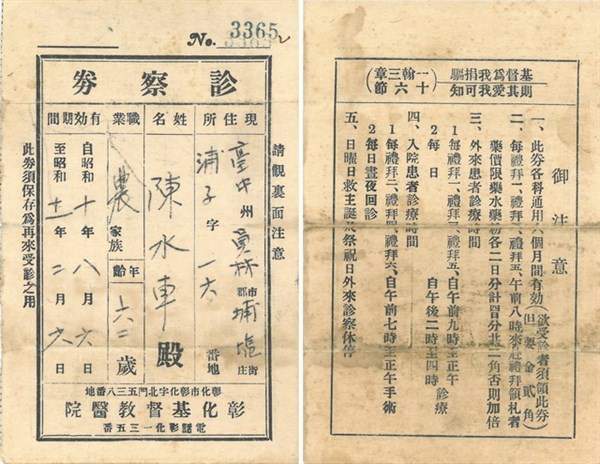 No. 3365
診察券
請觀裏面注意
現住所 臺中州 員林 市郡 埔塩 街庄
浦子字 一六 番地
姓名 陳水車 殿
職業 農 家族 年齡 六二 歲
有効期間 自昭和十年八月六日
至昭和十一年二月六日
此券須保存爲再來受診之用
彰化市彰化字北門五三八番地
彰化基督教醫院
電話彰化一三五番
基督爲我捐軀
則其愛我可知
(一翰三章
十六節)
御注意
一、此券各科通用六個月間有効(欲受診者須領此券
但要金貳角)
二、每禮拜一、禮拜五、午前八時來赴禮拜領札者
藥價限藥水藥粉各二日分計四分收二角否則加倍
三、外來患者診療時間
1 每禮拜一、禮拜三、禮拜五、自午前九時至正午 診療
2 每日 自午後二時至四時
四、入院患者診療時間
1 每禮拜二、禮拜四、禮拜六、自午前七時至正午手術
2 每日晝夜回診
五、日曜日救主誕辰祭祝日外來診察休停